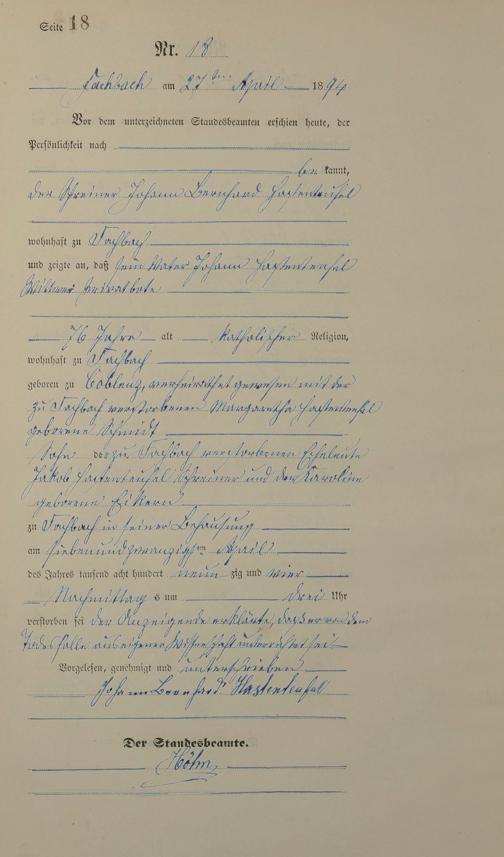 Seite 18
Nr. 18
Fachbach am 27ten April 1894
Vor dem unterzeichneten Standesbeamten erschien heute, der
Persönlichkeit nach
be kannt,
der Schreiner Johann Bernhard Hastenteufel
wohnhaft zu Fachbach
und zeigte an, daß sein Vater Johann Hastenteufel
Wittwer
76 Jahre alt katholischer Religion,
wohnhaft zu Fachbach
geboren zu Coblenz, verheirathet gewesen mit der
zu Fachbach verstorbenen Margaretha Hastenteufel
geborene Schmidt
Sohn der zu Fachbach verstorbenen Eheleute
Jakob Hastenteufel Schreiner und der Karoline
geborene
zu Fachbach in seiner Behausung
am siebenundzwanzigsten April
des Jahres tausend acht hundert neun zig und vier
Nachmittag s um drei Uhr
verstorben sei der Anzeigende erklärte, dass er von dem
Todesfalle aus eigener Wissenschaft unterrichtet sei
Vorgelesen, genehmigt und unterschrieben
Johann Bernhard Hastenteufel
Der Standesbeamte.
Höhn